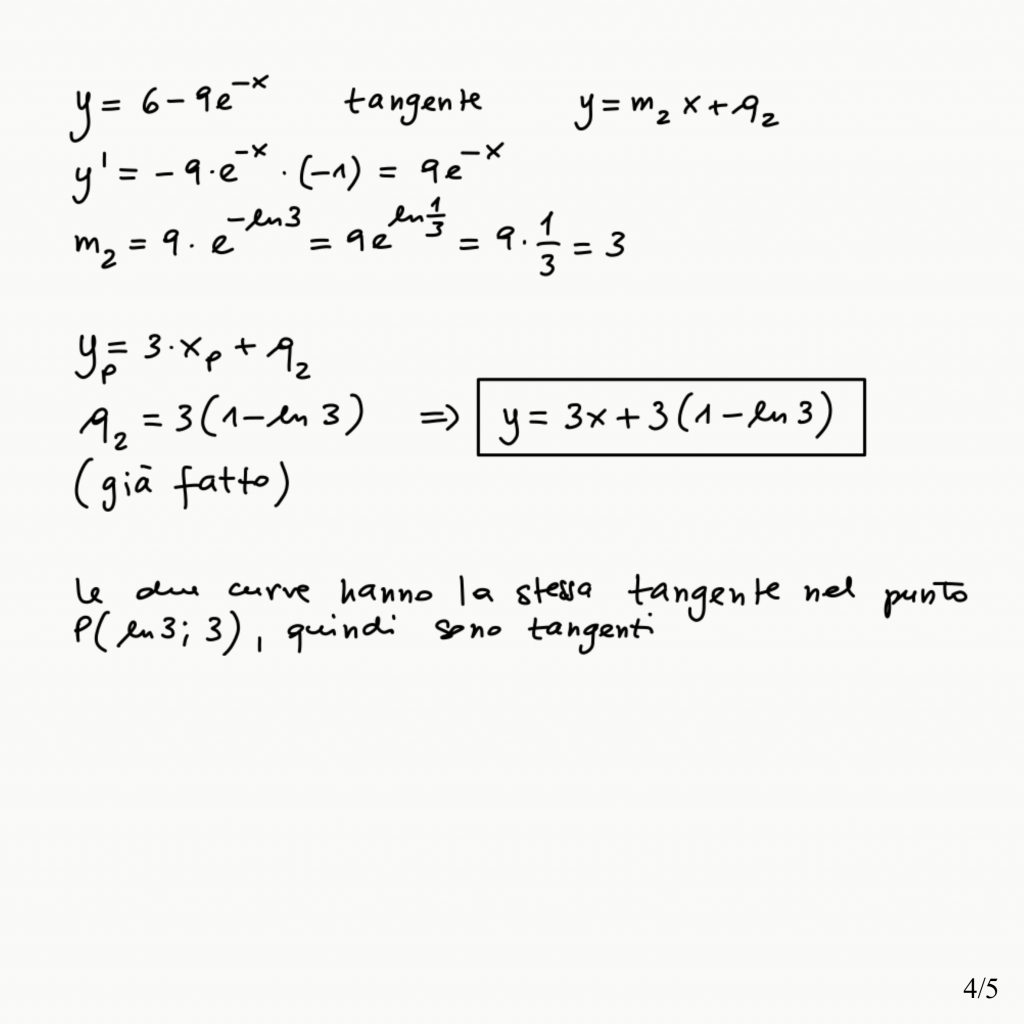 y = 6 - 9e^{-x} tangente y = m₂ x + q₂
y' = - 9·e^{-x} · (-1) = 9e^{-x}
m₂ = 9· e^{-ln3} = 9e^{ln 1/3} = 9· 1/3 = 3
y_P = 3·x_P + q₂
q₂ = 3(1-ln 3) ⇒ y = 3x + 3(1-ln 3)
(già fatto)
le due curve hanno la stessa tangente nel punto
P(ln3; 3), quindi sono tangenti
4/5